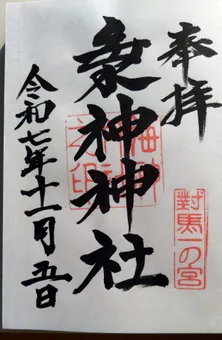 奉拝
對馬一の宮
海神神社
令和七年十一月五日